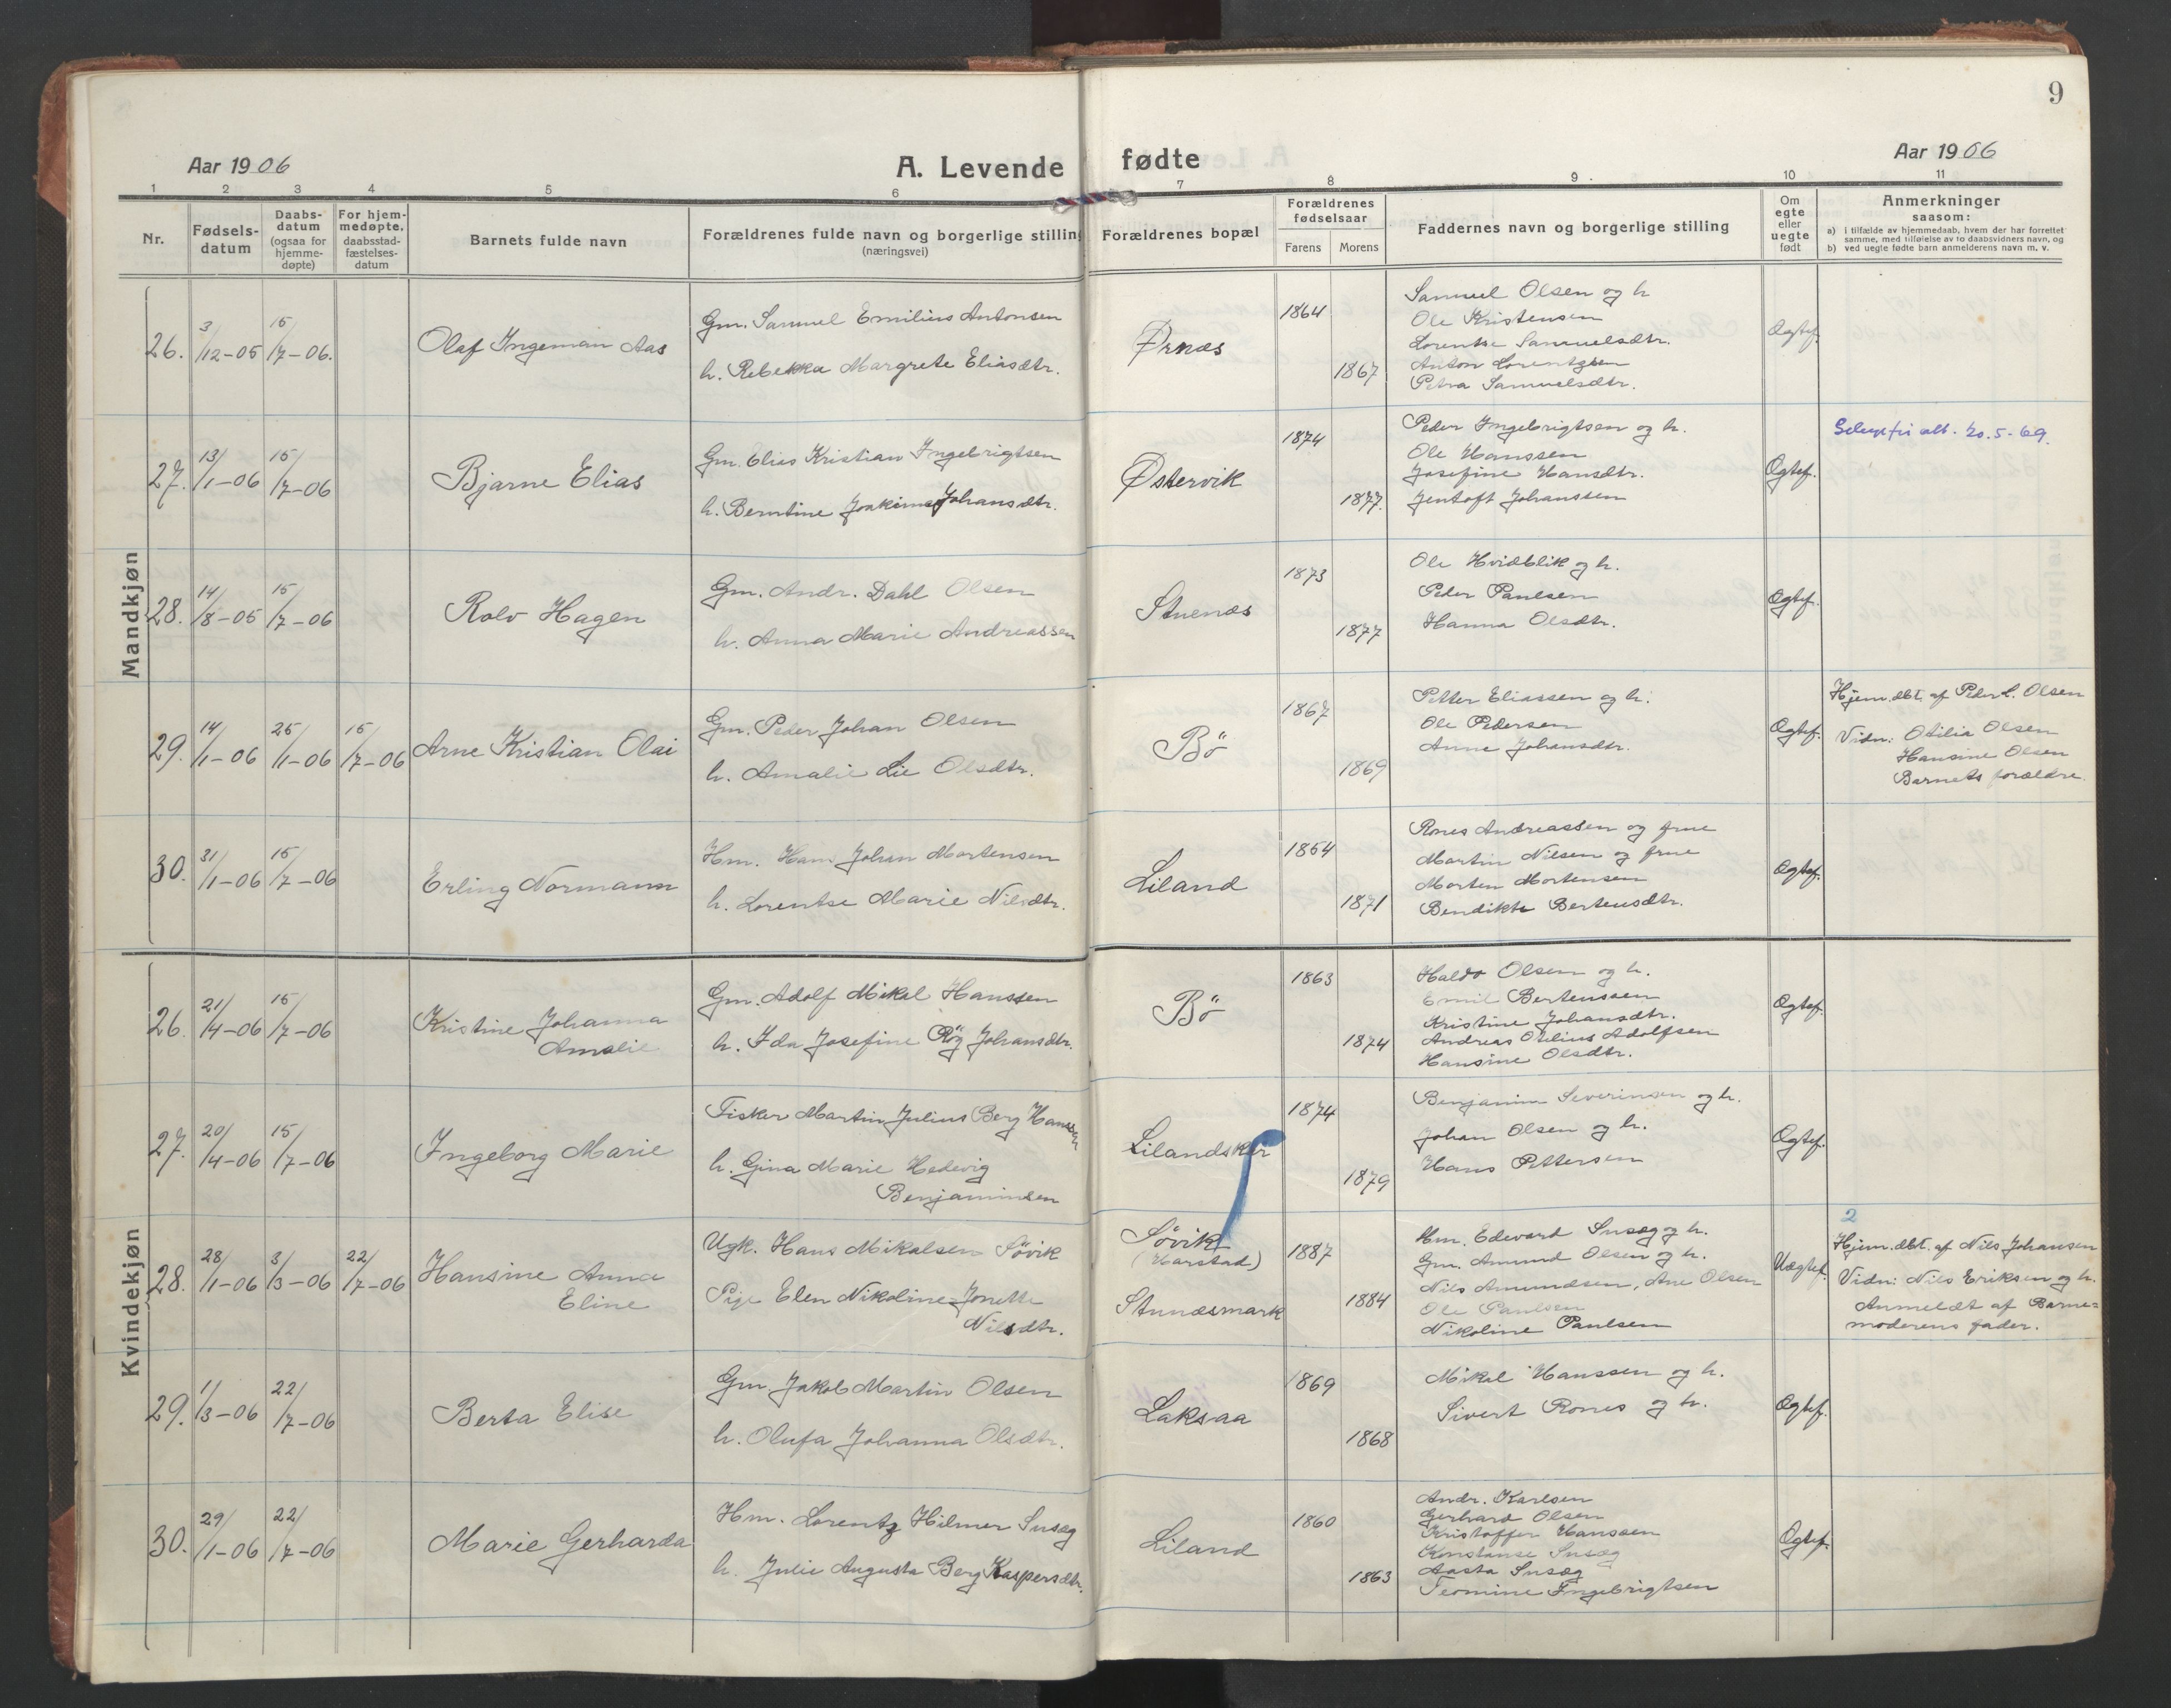 9
Aar 1906
A. Levende fødte
Aar 1906
1 2 3 4 5 6 7 8 9 10 11
Nr.
Fødsels-
datum
Daabs-
datum
(ogsaa for
hjemme-
døpte)
For hjem-
medøpte,
daabsstad-
fæstelses-
datum
Barnets fulde navn
Forældrenes fulde navn og borgerlige stilling
(næringsvei)
Forældrenes bopæl
Forældrenes
fødselsaar
Farens Morens
Faddernes navn og borgerlige stilling
Om
egte
eller
uegte
født
Anmerkninger
saasom:
a) i tilfælde av hjemmedaab, hvem der har forrettet
samme, med tilføielse av to daabsvidners navn, og
b) ved uegte fødte barn anmelderens navn m. v.
Mandkjøn
26. 3/12-05 15/7-06. Olaf Ingeman Aas
Gm. Samuel Emilius Antonsen
h. Rebekka Margrete Eliasdtr.
Ørnæs
1864
1867
Samuel Olsen og h
Ole Kristensen
Lorentse Samuelsdtr.
Anton Lorentzen
Petra Samuelsdtr.
Ogtef.
27. 13/1-06 15/7-06 Bjarne Elias
Gm. Elias Kristian Ingebrigtsen
h. Berntine Joakima Johansdtr.
Østervik
1874
1877.
Peder Ingebrigtsen og h.
Ole Hanssen
Josefine Hansdtr.
Jentoft Johanssen
Ogtef.
att. 20.5-69.
28. 14/8-05 15/7-06 Rolv Hagen
Gm. Andr. Dahl Olsen
h. Anna Marie Andreassen
Stuenæs
1873
1877
Ole Hvidblik og h.
Peder Paulsen
Hanna Olsdtr.
Ogtef.
29. 14/1-06 25/1-06 15/7-06 Arne Kristian Olai
Gm. Peder Johan Olsen
h. Amalie Lie Olsdtr.
Bö
1867
1869
Petter Eliassen og h.
Ole Pedersen
Anne Johansdtr.
Ogtef.
Hjem.dbt. af Peder L. Olsen
Vidn: Otilia Olsen
Hansine Olsen
Barnets forældre.
30. 31/1-06 15/7-06 Erling Normann
Hm. Hans Johan Mortensen
h. Lorentse Marie Nilsdtr.
Liland
1864
1871
Rones Andreassen og frue
Martin Nilsen og frue
Morten Mortensen
Bendikte Bertensdtr.
Ogtef.
Kvindekjøn
26. 21/4-06 15/7-06 Kristine Johanna
Amalie
Gm. Adolf Mikal Hanssen
h. Ida Josefine Røg Johansdtr.
Bö
1863
1874
Haldo Olsen og h.
Emil Bertenssen
Kristine Johansdtr.
Andreas Otelius Adolfsen
Hansine Olsdtr.
Ogtef.
27. 20/4-06 15/7-06 Ingeborg Marie
Fisker Martin Julius Berg Hanssen
h. Gina Marie Hedevig
Benjaminsen
Lilandskar
1874
1879
Benjamin Severinsen og h.
Johan Olsen og h.
Hans Pettersen
Ogtef.
28. 28/1-06 3/3-06 22/7-06 Hansine Anna
Eline
Ugk. Hans Mikalsen Sövik
Pige Elen Nikoline Jonette
Nilsdtr.
Sövik
(Harstad)
Stunæsmark
1887
1884
Hm. Edevard Snsæg og h.
Gm. Amund Olsen og h.
Nils Amundsen, Ane Olsen
Ole Paulsen
Nikoline Paulsen
Uægtef.
2
Hjem.dbt. af Nils Johansen
Vidn: Nils Eriksen og h.
Anmeldt af Barne=
moderens fader.
29. 1/3-06 22/7-06 Berta Elise
Gm Jakob Martin Olsen
h. Olufa Johanna Olsdtr.
Laksaa
1869
1868
Mikal Hanssen og h.
Sivert Rones og h.
Ogtef.
30. 29/1-06 22/7-06 Marie Gerharda
Hm. Lorentz Hilmer Snsæg
h. Julie Augusta Berg Kaspersdtr.
Liland
1860
1863
Andr. Karlsen
Gerhard Olsen
Kristoffer Hanssen
Konstanse Snsæg
Aasta Snsæg
Teomine Ingebrigtsen
Ogtef.